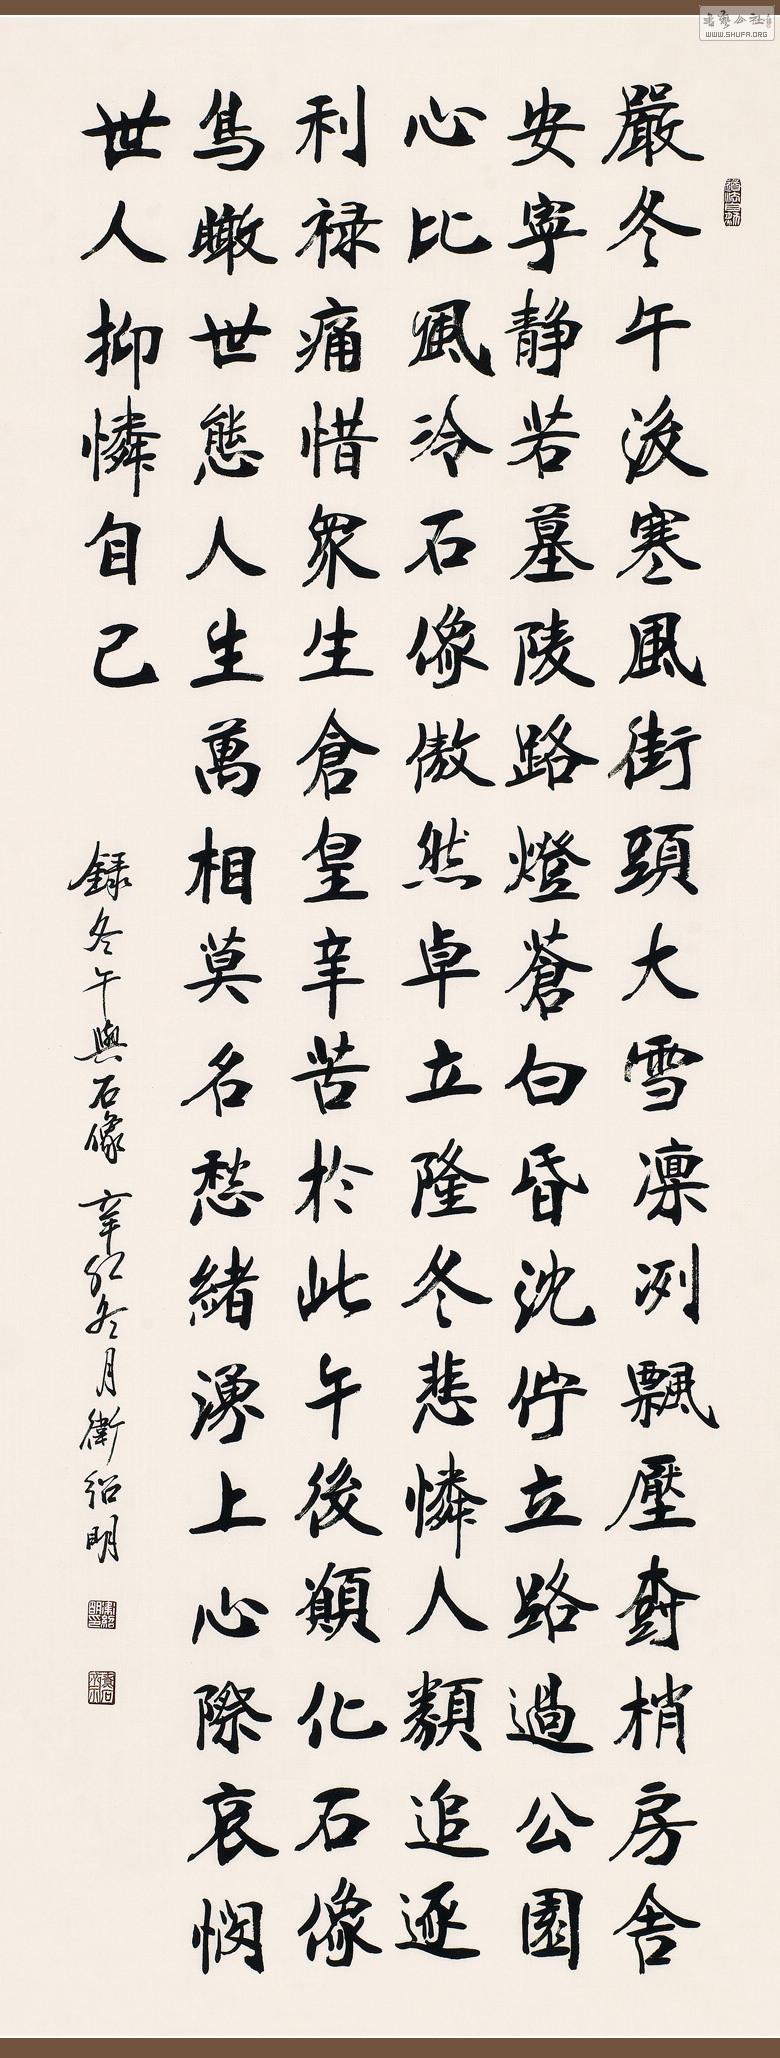 嚴冬午後寒風街頭大雪凛冽飄壓樹梢房舍
安寧静若墓陵路燈蒼白昏沈佇立路過公園
心比風冷石像傲然卓立隆冬悲憐人類追逐
利禄痛惜眾生倉皇辛苦於此午後願化石像
鳥瞰世態人生萬相莫名愁緒湧上心際哀憫
世人抑憐自己
録冬午與石像 辛卯冬月衛紹明
WWW.SHUFA.ORG